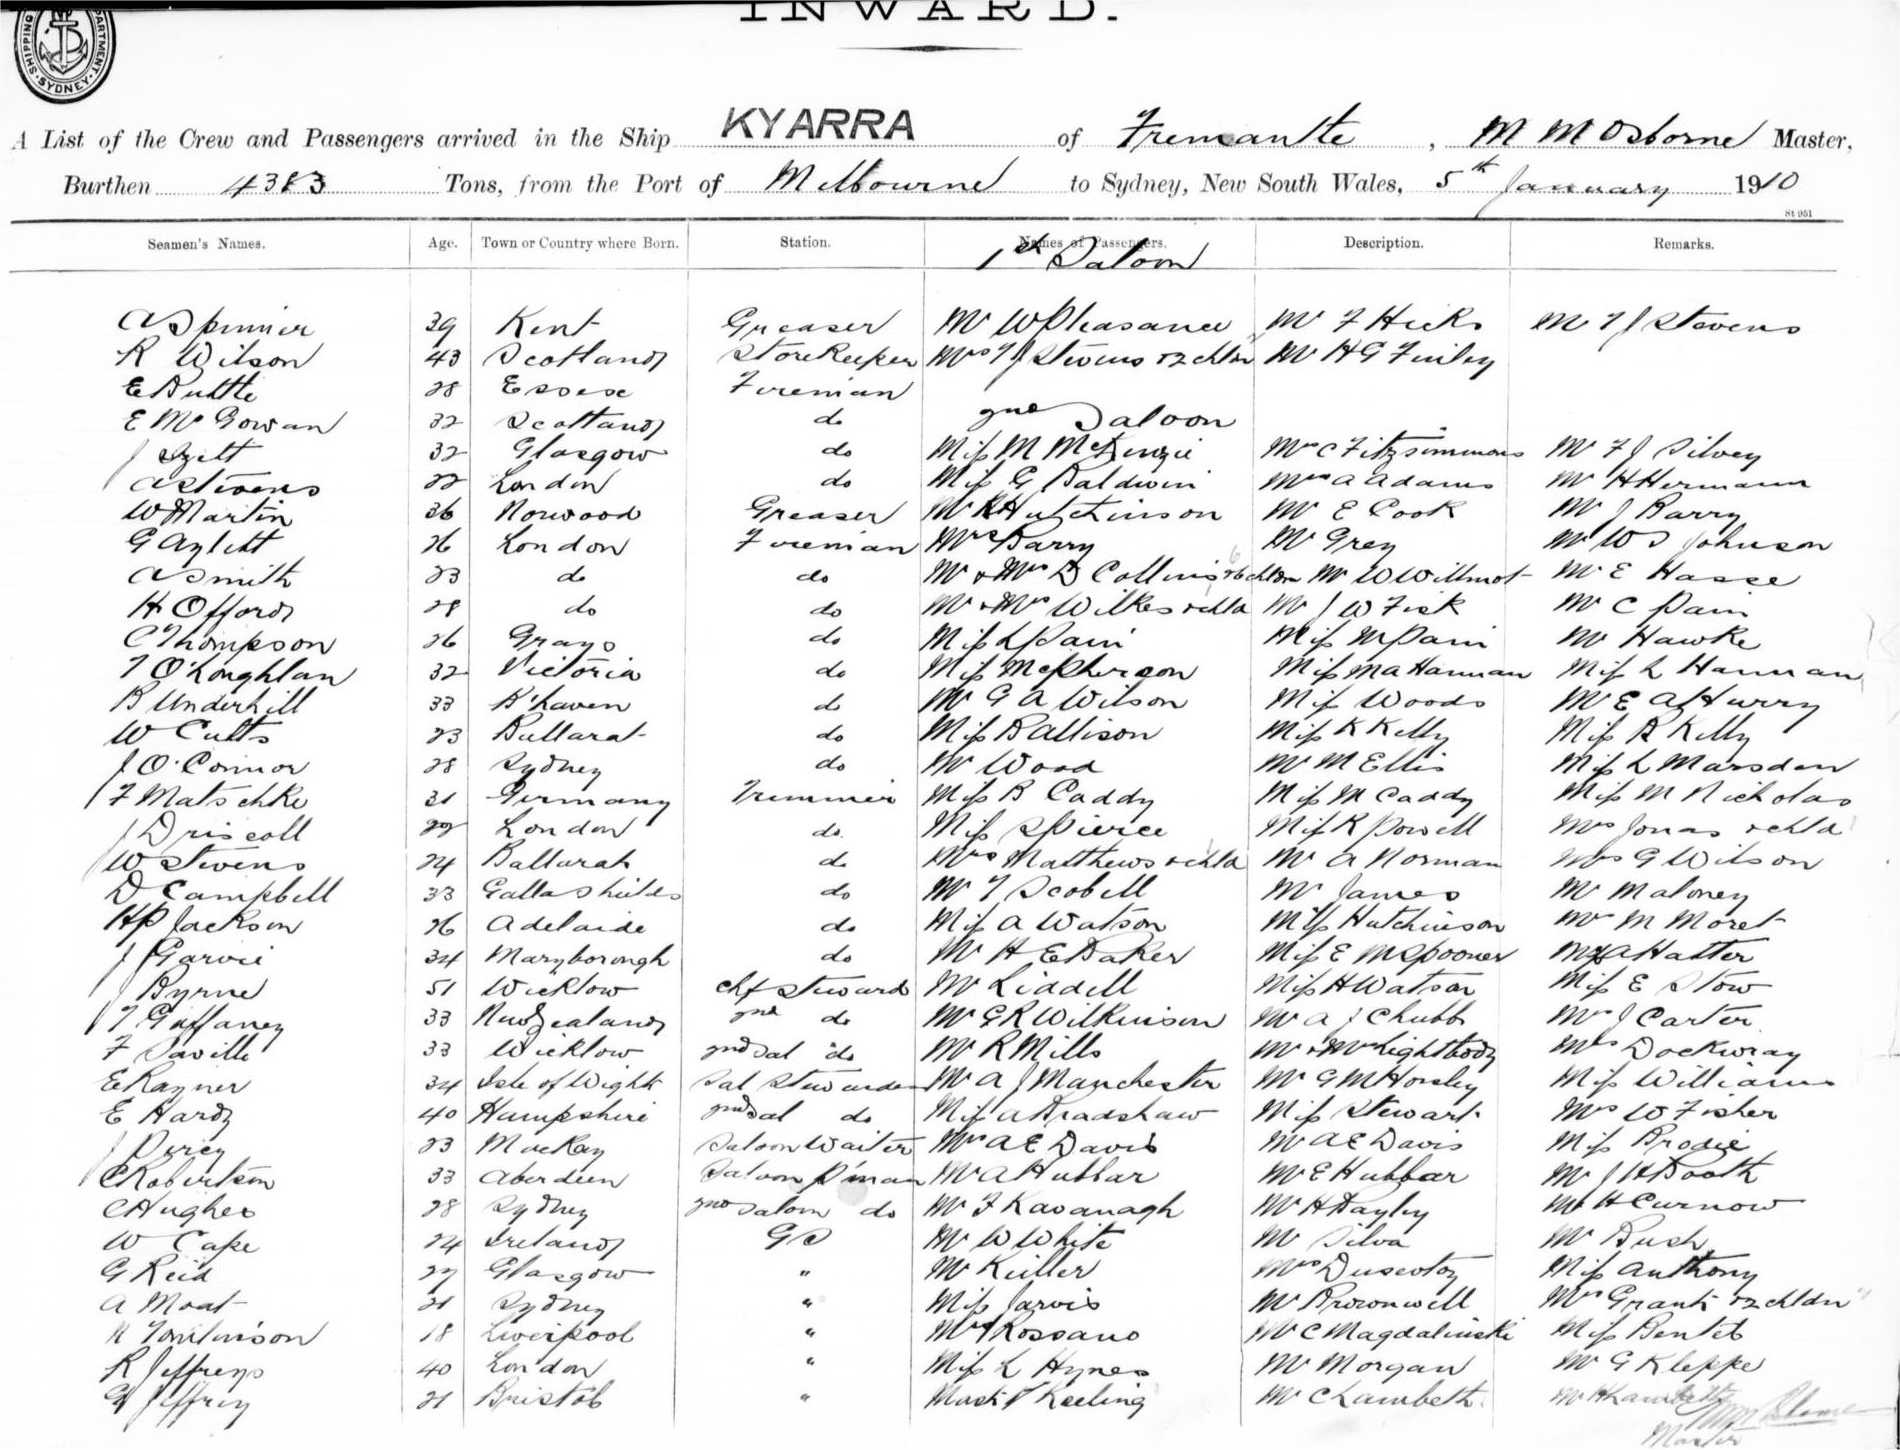 INWARD.
SHIPPING DEPARTMENT SYDNEY
A List of the Crew and Passengers arrived in the Ship KYARRA of Fremantle, M M Osborne Master,
Burthen 4383 Tons, from the Port of Melbourne to Sydney, New South Wales, 5th January 1910
St 951
Seamen's Names. Age. Town or Country where Born. Station. Names of Passengers. Description. Remarks.
1st Saloon
A Spinner 39 Kent Greaser Mr W Pleasance Mr F Hicks Mr T J Stevens
R Wilson 43 Scotland Storekeeper Mrs T J Stevens & 2 chldn Mr H G Finley
E Buttle 28 Essex Fireman
E McGowan 32 Scotland do 2nd Saloon
J 32 Glasgow do Miss M McKenzie Mrs C Fitzsimmons Mr F J Silvey
A Stevens 22 London do Miss G Baldwin Mrs A Adams Mr H Hermann
W Martin 36 Norwood Greaser Mr R Hutchinson Mr E Cook Mr J Barry
G Aylett 26 London Fireman Mrs Barry Mr Grey Mr W S Johnson
A Smith 23 do do Mr & Mrs D Collins & 6 chldn Mr W Willmot Mr E Hasse
H Offord 28 do do Mr & Mrs Wilkes & chld Mr J W Fisk Mr C Pain
C Thompson 26 Grays do Miss L Pain Miss M Pain Mr Hawke
T O'Loughlan 32 Victoria do Miss McPherson Miss M A Hannan Miss L Hannan
B Underhill 33 B'haven do Mr G A Wilson Miss Woods Mr E A Hurry
W Cutts 23 Ballarat do Miss B Allison Miss K Kelly Miss R Kelly
J O'Connor 28 Sydney do Mr Wood Mr M Ellis Miss L Marsden
F Matschke 31 Germany Trimmer Miss B Caddy Miss M Caddy Miss M Nicholas
J Driscoll 22 London do. Miss S Pierce Miss K Powell Mrs Jonas & chld
W Stevens 24 Ballarat do Mrs Matthews & chld Mr A Norman Mrs G Wilson
D Campbell 33 Gallashields do Mr T Scobell Mr James Mr Maloney
H P Jackson 26 Adelaide do Miss A Watson Miss Hutchinson Mr M Moret
J Garvie 34 Maryborough do Mr H E Baker Miss E M Spooner A Hatter
J Byrne 51 Wicklow chf Steward Mr Liddell Miss H Watson Miss E Stow
T Gaffaney 33 New Zealand 2nd do Mr G R Wilkinson Mr A J Chubb Mr J Carter
F Saville 33 Wicklow 2nd Sal do Mr R Mills Mr & Mrs Lightbody Mrs Dockwray
E Rayner 34 Isle of Wight Sal Stewardess Mr A J Manchester Mr G M Horsley Miss Williams
E Hardy 40 Hampshire 2nd Sal do Miss A Bradshaw Miss Stewart Mrs W Fisher
J Percy 23 Mackay Saloon Waiter Mrs A E Davis Mr A E Davis Miss Brodie
C Robertson 33 Aberdeen Saloon P'man Mr A Hubbar Mr E Hubbar Mr J H Booth
C Hughes 28 Sydney 2nd Saloon do Mr F Kavanagh Mr H Bayley Mr H Curnow
W Cape 24 Ireland G S Mr W White Mr Silva Mr Bush
G Reid 27 Glasgow " Mr Keiller Mrs Miss Anthony
A Moat 21 Sydney " Miss Jarvis Mr Brownwell Mrs Grant & 2 chldn
Tomlinson 18 Liverpool " Mr Rossano Mr C Magdalinski Miss Bentet
R Jeffreys 40 London " Miss L Hynes Mr Morgan Mr G Kleppe
G Jeffrey 21 Bristol " Mast T Keeling Mr C Lambeth. Mr H Lambeth
Master